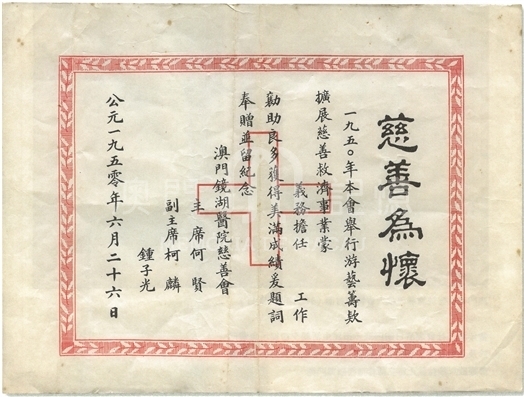 慈善為懷
一九五〇年本會舉行游藝籌欵
擴展慈善救濟事業蒙
義務擔任 工作
勷助良多獲得美滿成績爰題詞
奉贈並留紀念
澳門鏡湖醫院慈善會
主席何賢
副主席柯麟
鍾子光
公元一九五零年六月二十六日